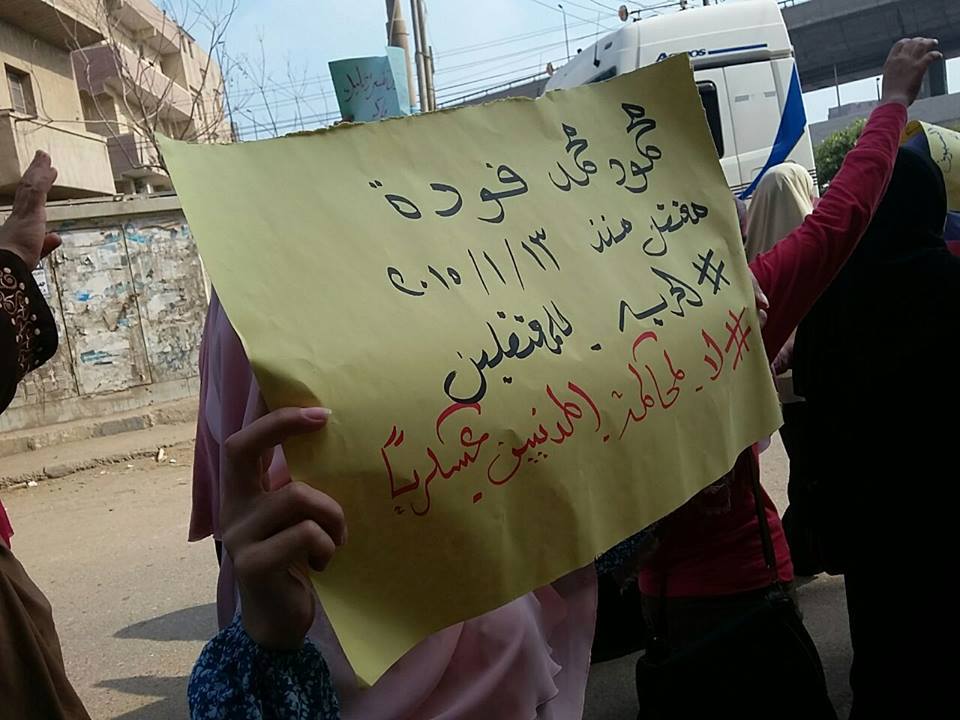 محمود محمد فودة
معتقل منذ ١٣/١/٢٠١٥
#الحرية_للمعتقلين
#لا_لمحاكمة_المدنيين_عسكرياً